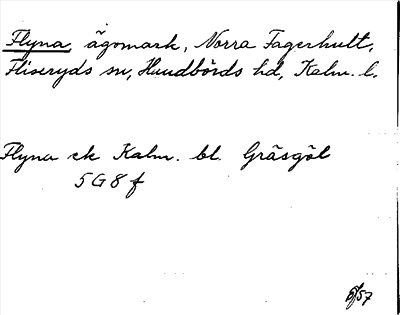 Flyna, ägomark, Norra Fagerhult,
Fliseryds sn, Handbörds hd, Kalm. l.
Flyna ek Kalm. bl. Gräsgöl
5G8f
5/57